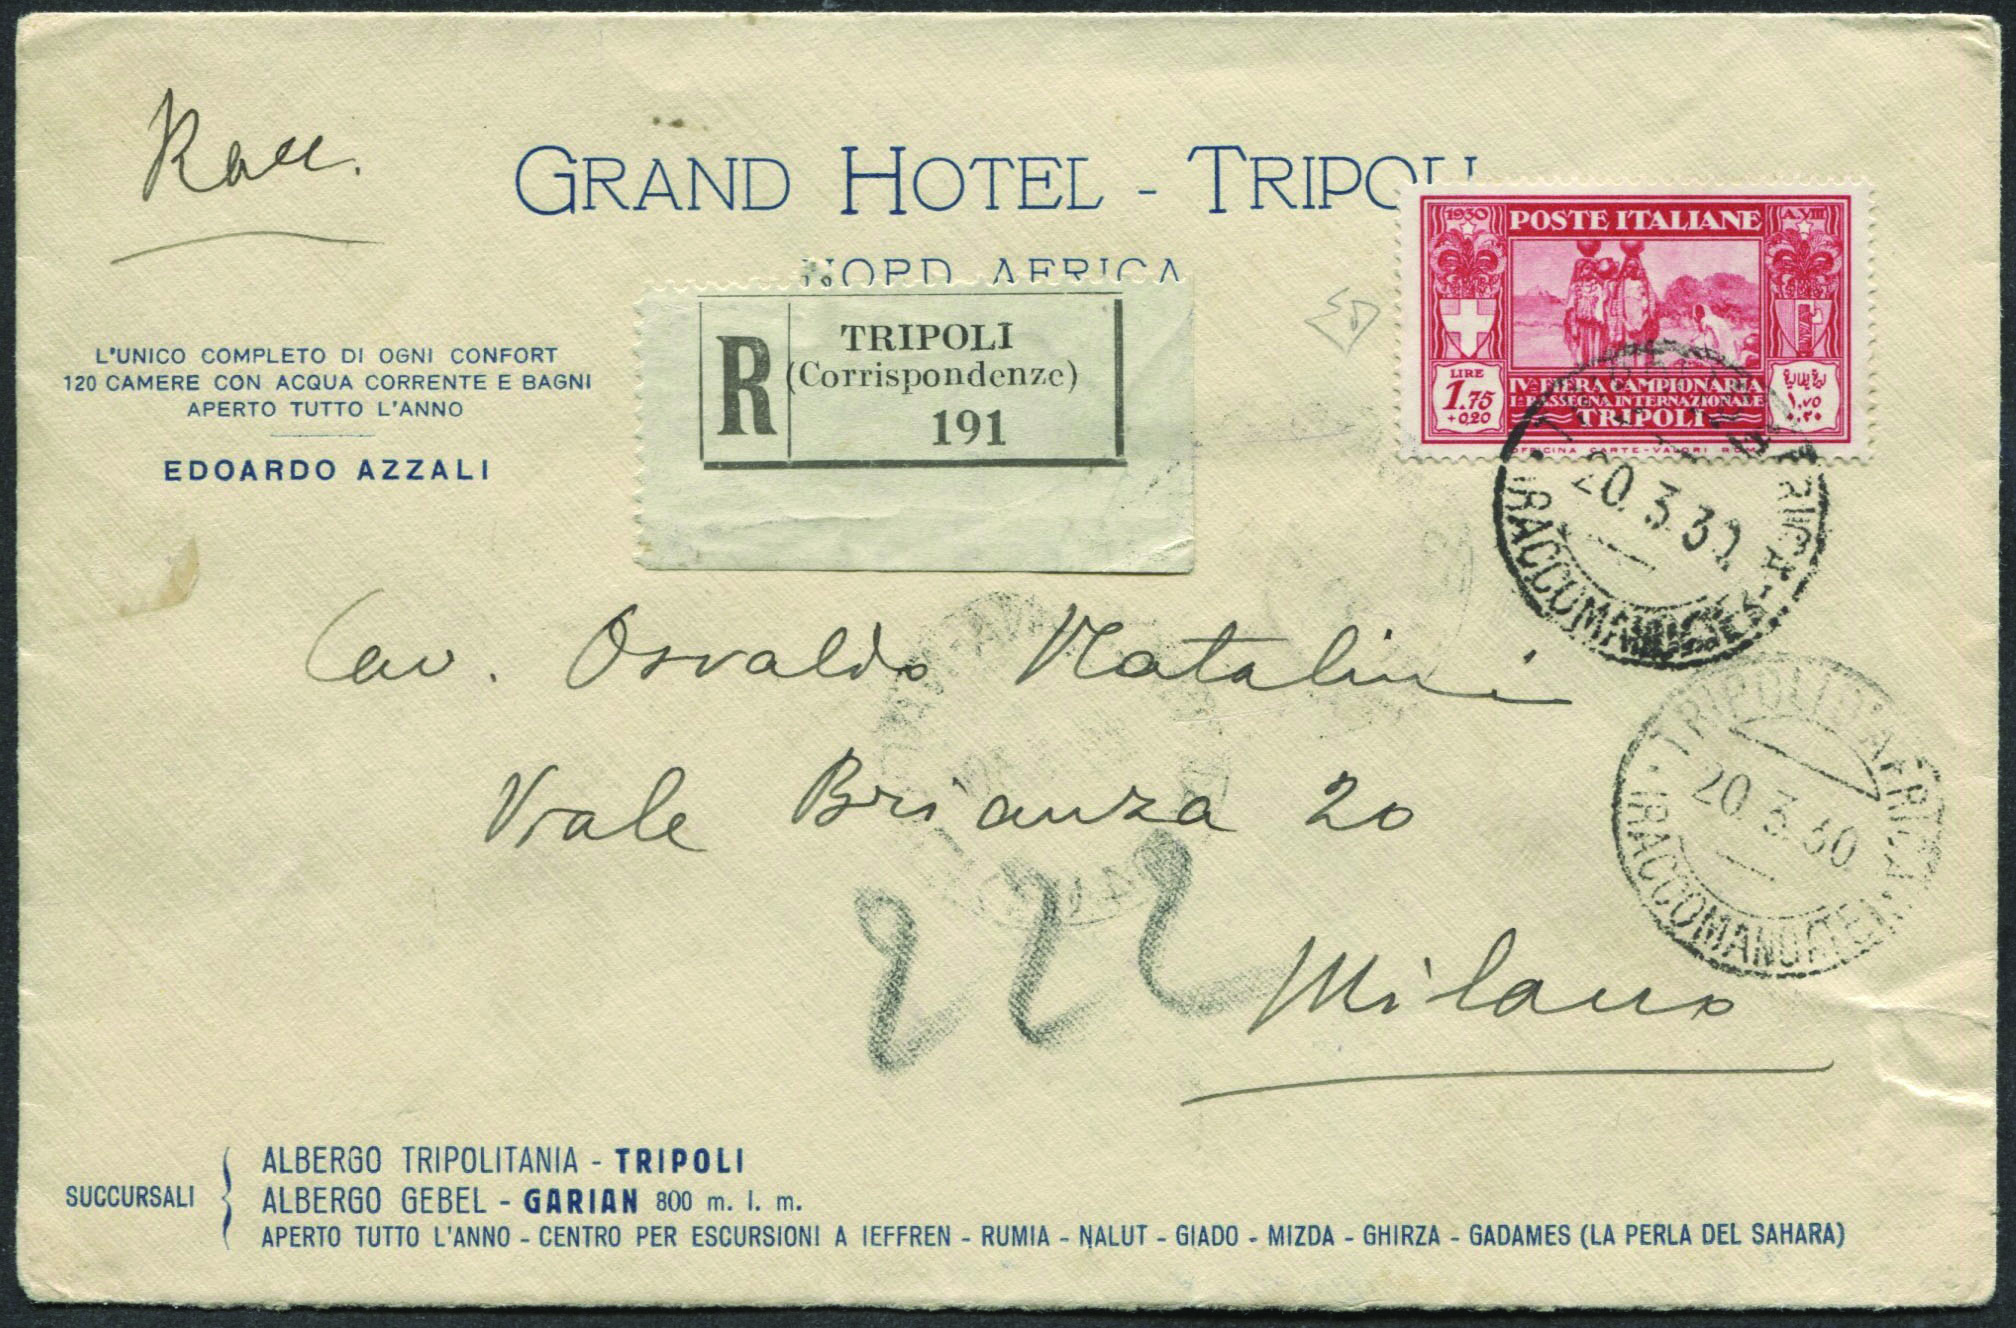 Racc.
GRAND HOTEL - TRIPOLI
NORD AFRICA
L'UNICO COMPLETO DI OGNI CONFORT
120 CAMERE CON ACQUA CORRENTE E BAGNI
APERTO TUTTO L'ANNO
EDOARDO AZZALI
R
TRIPOLI
(Corrispondenze)
191
1930 POSTE ITALIANE A.VIII
LIRE
1.75
+0,20
IVª FIERA CAMPIONARIA
1ª RASSEGNA INTERNAZIONALE
TRIPOLI
١.٧٥
OFFICINA CARTE-VALORI ROMA
20.3.30
TRIPOLI D'AFRICA
20.3.30
Cav. Osvaldo Natalini
Viale Brianza 20
222
Milano
SUCCURSALI
ALBERGO TRIPOLITANIA - TRIPOLI
ALBERGO GEBEL - GARIAN 800 m. l. m.
APERTO TUTTO L'ANNO - CENTRO PER ESCURSIONI A IEFFREN - RUMIA - NALUT - GIADO - MIZDA - GHIRZA - GADAMES (LA PERLA DEL SAHARA)